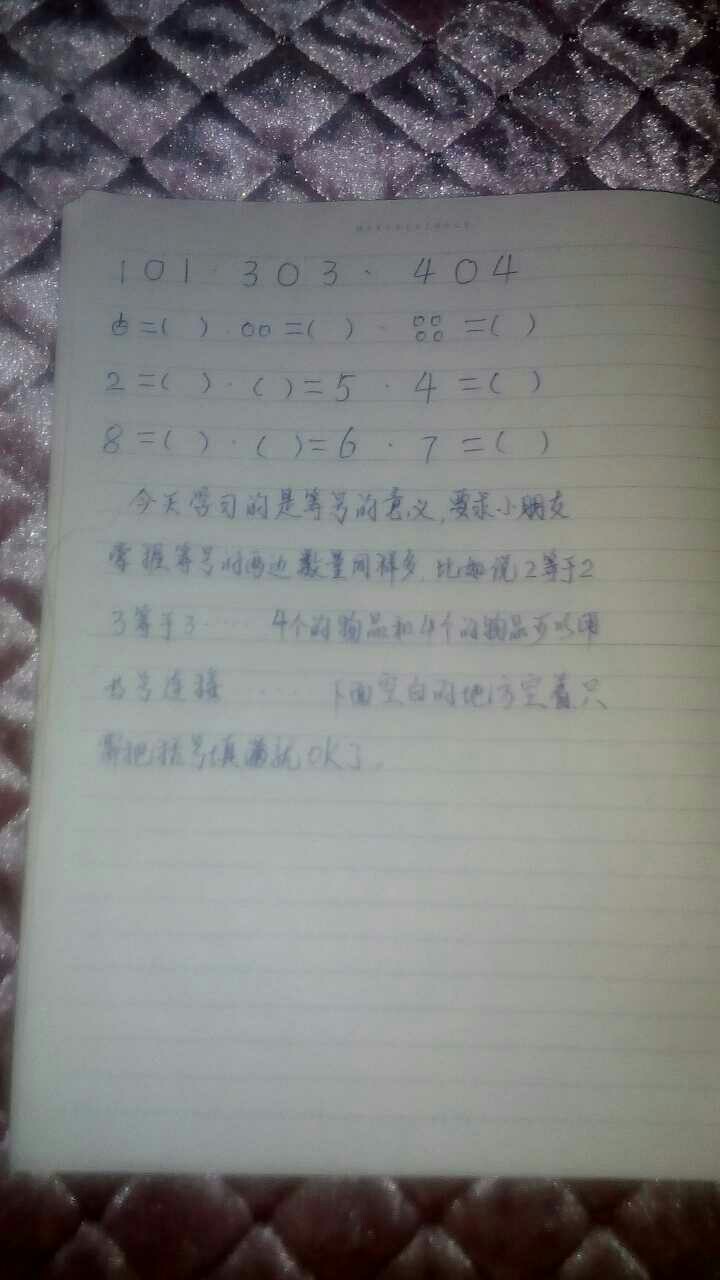 1○1 · 3○3 · 4○4
=( ) · ○○=( ) · ○○○○=( )
2=( ) · ( )=5 · 4=( )
8=( ) · ( )=6 · 7=( )
今天学习的是等号的意义,要求小朋友
掌握等号的两边数量同样多,比如说2等于2
3等于3…… 4个的物品和4个的物品可以用
号连接 …… 下面空白的地方空着只
需把括号填满就OK了。